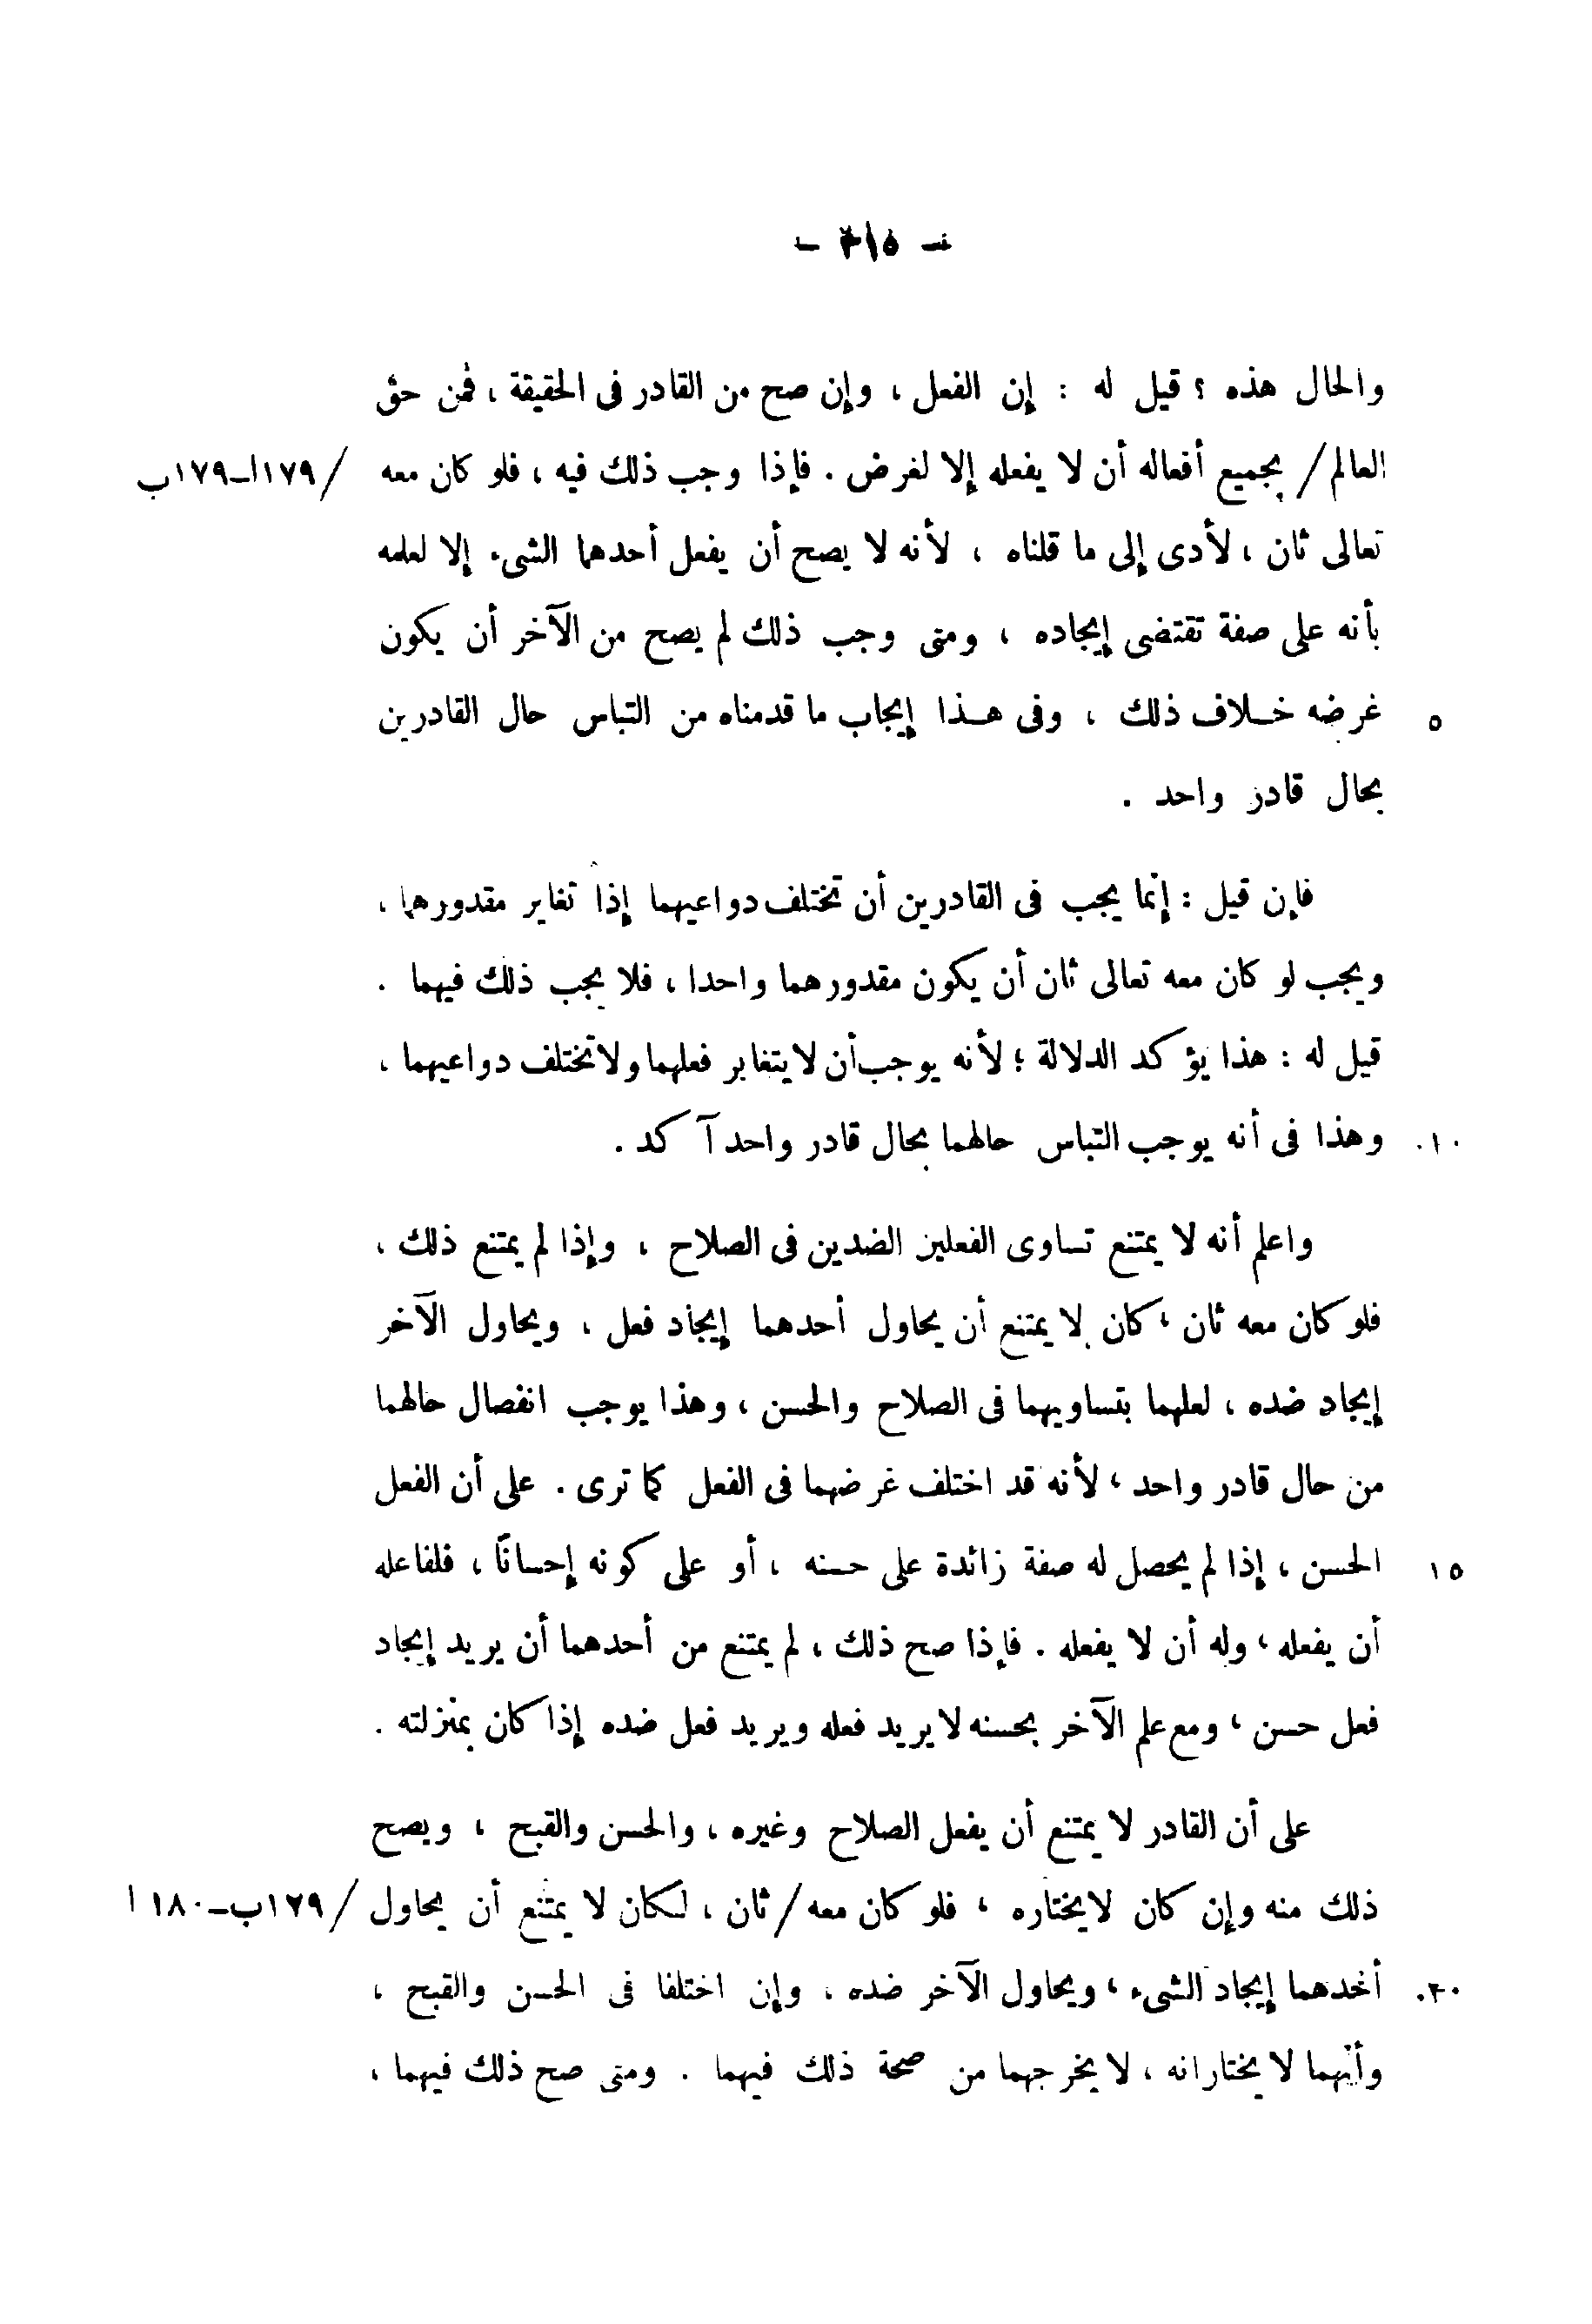 — ٣١٥ —
والحال هذه ؟ قيل له : إن الفعل ، وإن صح من القادر فى الحقيقة ، فمن حق
العالم / بجميع أفعاله أن لا يفعله إلا لغرض . فإذا وجب ذلك فيه ، فلو كان معه /١٧٩ا-١٧٩ب
تعالى ثان ، لأدى إلى ما قلناه ، لأنه لا يصح أن يفعل أحدهما الشىء إلا لعلمه
بأنه على صفة تقتضى إيجاده ، ومتى وجب ذلك لم يصح من الآخر أن يكون
٥ غرضه خلاف ذلك ، وفى هذا إيجاب ما قدمناه من التباس حال القادرين
بحال قادر واحد .
فإن قيل : إنما يجب فى القادرين أن تختلف دواعيهما إذا تغاير مقدورهما ،
ويجب لو كان معه تعالى ثان أن يكون مقدورهما واحدا ، فلا يجب ذلك فيهما .
قيل له : هذا يؤكد الدلالة ؛ لأنه يوجب أن لا يتغاير فعلهما ولا تختلف دواعيهما ،
١٠ وهذا فى أنه يوجب التباس حالهما بحال قادر واحد آكد .
واعلم أنه لا يمتنع تساوى الفعلين الضدين فى الصلاح ، وإذا لم يمتنع ذلك ،
فلو كان معه ثان ، كان لا يمتنع أن يحاول أحدهما إيجاد فعل ، ويحاول الآخر
إيجاد ضده ، لعلمهما بتساويهما فى الصلاح والحسن ، وهذا يوجب انفصال حالهما
من حال قادر واحد ، لأنه قد اختلف غرضهما فى الفعل كما ترى . على أن الفعل
١٥ الحسن ، إذا لم يحصل له صفة زائدة على حسنه ، أو على كونه إحسانًا ، فلفاعله
أن يفعله ، وله أن لا يفعله . فإذا صح ذلك ، لم يمتنع من أحدهما أن يريد إيجاد
فعل حسن ، ومع علم الآخر بحسنه لا يريد فعله ويريد فعل ضده إذا كان بمنزلته .
على أن القادر لا يمتنع أن يفعل الصلاح وغيره ، والحسن والقبح ، ويصح
ذلك منه وإن كان لا يختاره ، فلو كان معه / ثان ، لكان لا يمتنع أن يحاول /١٧٩ب-١٨٠ ا
٢٠ أحدهما إيجاد الشىء ، ويحاول الآخر ضده ، وإن اختلفا فى الحسن والقبح ،
وأنهما لا يختارانه ، لا يخرجهما من صحة ذلك فيهما . ومتى صح ذلك فيهما ،